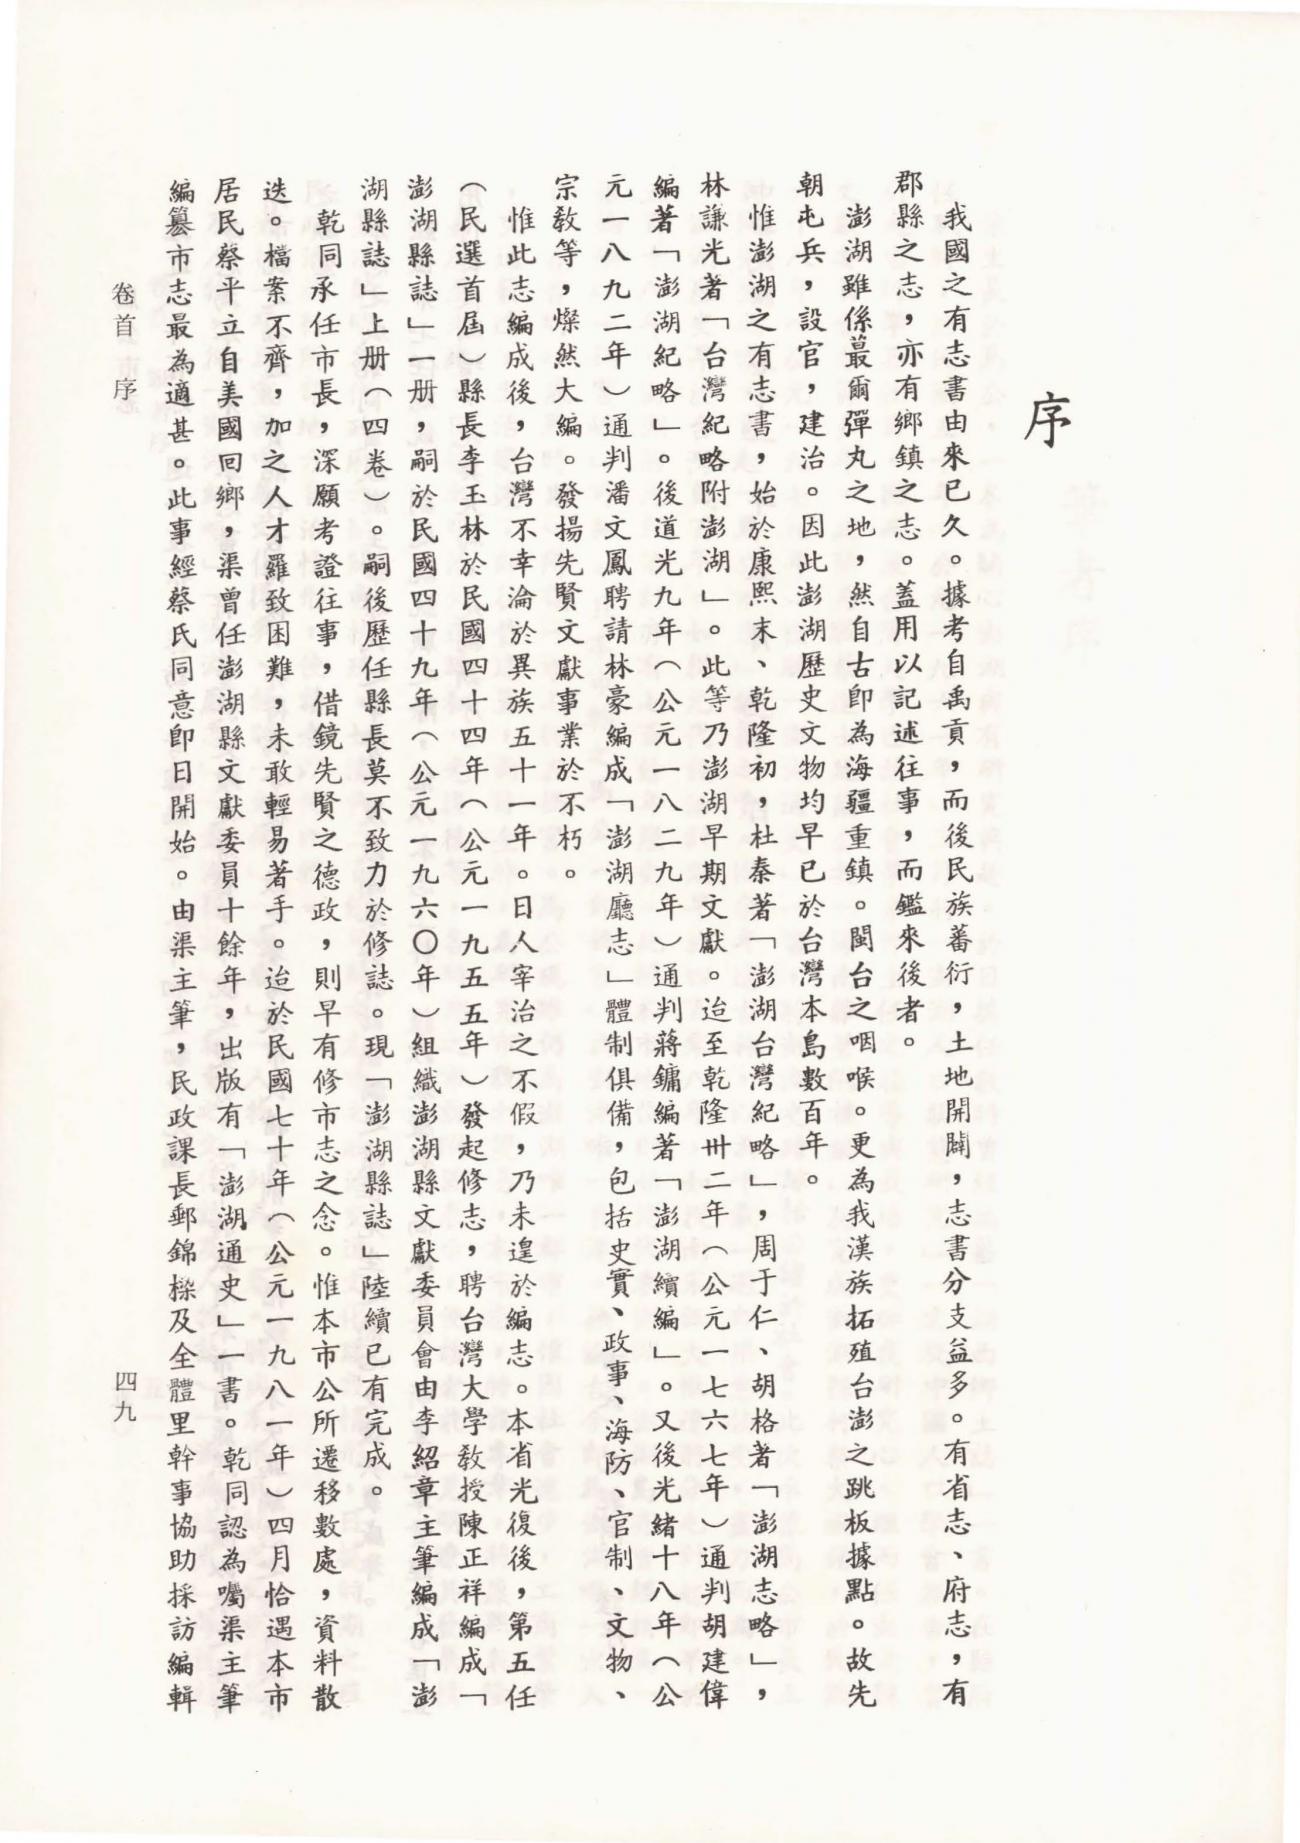 序
我國之有志書由來已久。據考自禹貢，而後民族蕃衍，土地開闢，志書分支益多。有省志、府志，有
郡縣之志，亦有鄉鎮之志。蓋用以記述往事，而鑑來後者。
澎湖雖係蕞爾彈丸之地，然自古即為海疆重鎮。閩台之咽喉。更為我漢族拓殖台澎之跳板據點。故先
朝屯兵，設官，建治。因此澎湖歷史文物均早已於台灣本島數百年。
惟澎湖之有志書，始於康熙末、乾隆初，杜秦著「澎湖台灣紀略」，周于仁、胡格著「澎湖志略」，
林謙光著「台灣紀略附澎湖」。此等乃澎湖早期文獻。迨至乾隆卅二年（公元一七六七年）通判胡建偉
編著「澎湖紀略」。後道光九年（公元一八二九年）通判蔣鏞編著「澎湖續編」。又後光緒十八年（公
元一八九二年）通判潘文鳳聘請林豪編成「澎湖廳志」體制俱備，包括史實、政事、海防、官制、文物、
宗教等，燦然大編。發揚先賢文獻事業於不朽。
惟此志編成後，台灣不幸淪於異族五十一年。日人宰治之不假，乃未遑於編志。本省光復後，第五任
（民選首屆）縣長李玉林於民國四十四年（公元一九五五年）發起修志，聘台灣大學教授陳正祥編成「
澎湖縣誌」一册，嗣於民國四十九年（公元一九六〇年）組織澎湖縣文獻委員會由李紹章主筆編成「澎
湖縣誌」上册（四卷）。嗣後歷任縣長莫不致力於修誌。現「澎湖縣誌」陸續已有完成。
乾同承任市長，深願考證往事，借鏡先賢之德政，則早有修市志之念。惟本市公所遷移數處，資料散
迭。檔案不齊，加之人才羅致困難，未敢輕易著手。迨於民國七十年（公元一九八一年）四月恰遇本市
居民蔡平立自美國回鄉，渠曾任澎湖縣文獻委員十餘年，出版有「澎湖通史」一書。乾同認為囑渠主筆
編纂市志最為適甚。此事經蔡氏同意即日開始。由渠主筆，民政課長郵錦櫟及全體里幹事協助採訪編輯
卷首 序
四九